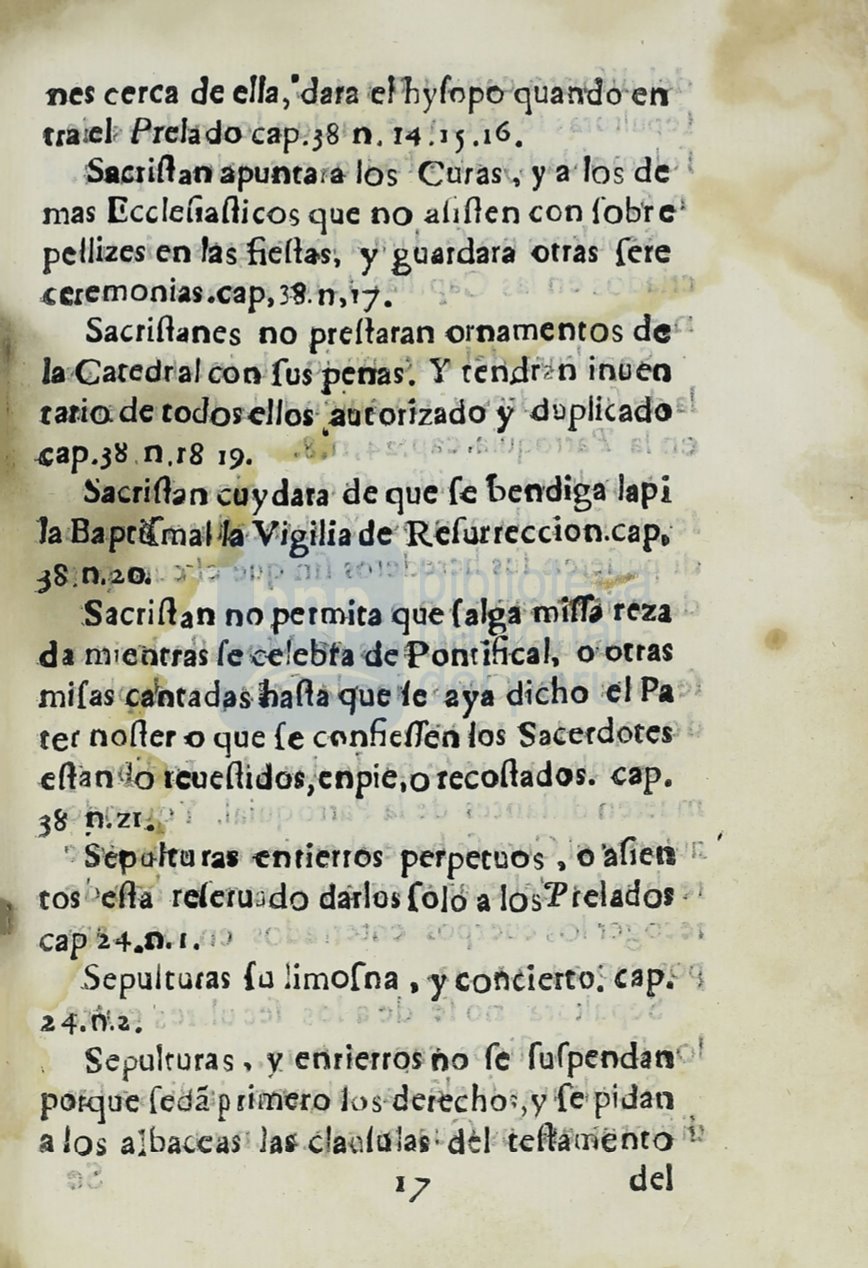 nes cerca de ella, dara el hyſopo quando en
tra el Prelado cap.38 n. 14.15.16.
Sacriſtan apuntara los Curas, y a los de
mas Eccleſiaſticos que no aſiſten con ſobre
pellizes en las fieſtas, y guardara otras ſere
ceremonias.cap,38.n,17.
Sacriſtanes no preſtaran ornamentos de
la Catedral con ſus penas. Y tendran inuen
tario de todos ellos autorizado y duplicado
cap.38 n.18 19.
Sacriſtan cuydara de que ſe bendiga lapi
la Baptiſmal la Vigilia de Reſurreccion.cap,
38.n.20.
Sacriſtan no permita que ſalga miſſa reza
da mientras ſe celebra de Pontifical, o otras
miſas cantadas haſta que ſe aya dicho el Pa
ter noſter o que ſe confieſſen los Sacerdotes
eſtando reueſtidos, enpie, o recoſtados. cap.
38 n.21.
Sepulturas entierros perpetuos, o aſien
tos eſta reſeruado darlos ſolo a los Prelados
cap 24.n.1.
Sepulturas ſu limoſna, y concierto. cap.
24.n.2.
Sepulturas, y entierros no ſe ſuſpendan
porque ſedã primero los derechos, y ſe pidan
a los albaceas las clauſulas del teſtamento
17 del